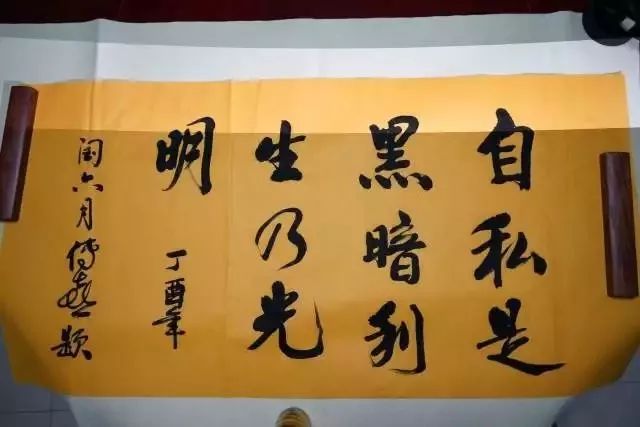 自私是
黑暗利
生乃光
明 丁酉年
闰六月传喜题